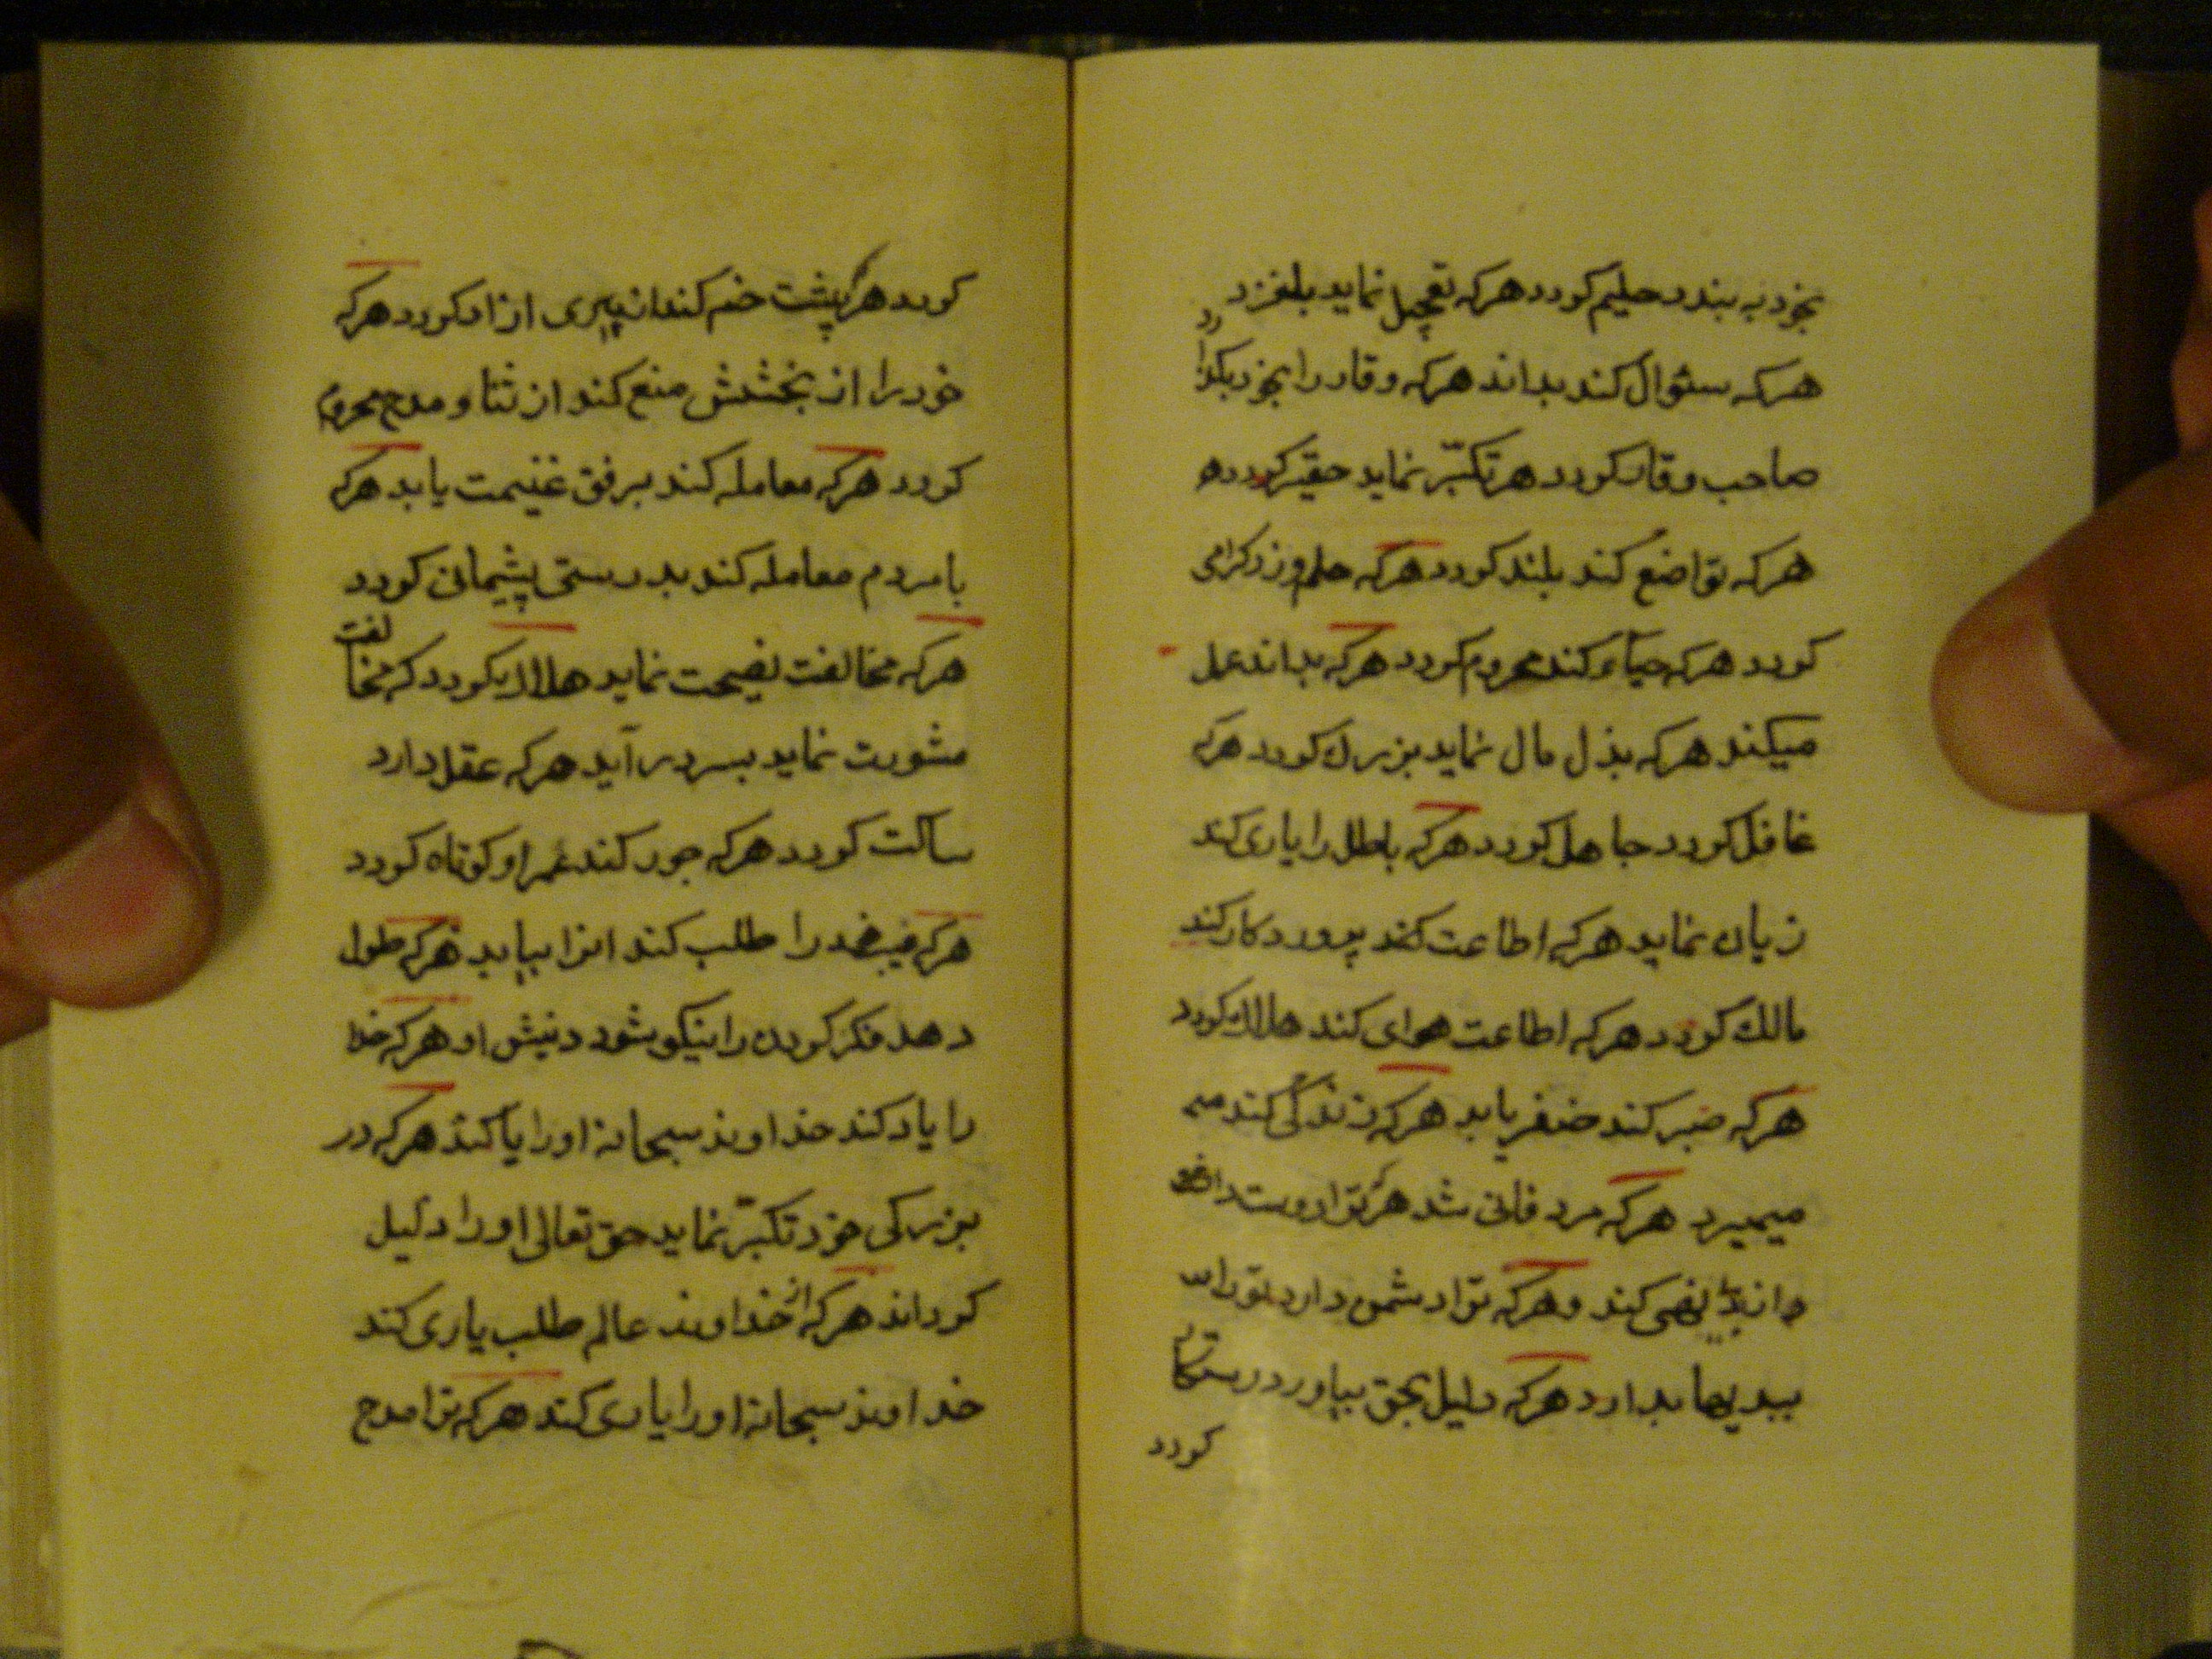 بخود به بندد حلیم کردد هرکه تعجیل نماید بلغزد
هرکه سئوال کند بداند هرکه وقار را بخود بکذارد
صاحب وقار کردد هر تکبّر نماید حقیر کردد ه
هرکه تواضع کند بلند کردد هرکه حلم ورزد کرامی
کردد هرکه حیاء کند محروم کردد هرکه بداند عمل
میکند هرکه بذل مال نماید بزرك کردد هرکه
غافل کردد جاهل کردد هرکه باطل را یاری کند
زیان نماید هرکه اطاعت کند پروردکار کند
مالك کردد هرکه اطاعت هوای کند هلاك کردد
هرکه صبر کند ضفر یابد هرکه زندکی کند میـ
میمیرد هرکه مرد فانی شد هرکه ترا دوست دارد
نهی کند و هرکه ترا دشمن دارد تورا
ببدیها بدارد هرکه دلیل بحق بیاورد رستکار
کردد
کردد هرکه پشت خم کند از پیری ازاد کردد هرکه
خود را از بخشش منع کند از ثنا و مدح محروم
کردد هرکه معامله کند برفق غنیمت یابد هرکه
با مردم معامله کند بدرستی پشیمان کردد
هرکه مخالفت نصیحت نماید هلاك کردد که مخالفت
مشورت نماید بسر در آید هرکه عقل دارد
ساکت کردد هرکه جور کند عمر او کوتاه کردد
هرکه را طلب کند انرا بیابد هرکه طول
دهد فکر کردن را نیکو شود دنیش او هرکه خدا
را یاد کند خداوند سبحانه اورا یاد کند هرکه در
بزرکی خود تکبّر نماید حق تعالی اورا دلیل
کرداند هرکه از خداوند عالم طلب یاری کند
خداوند سبحانه اورا یاری کند هرکه ترا مدح